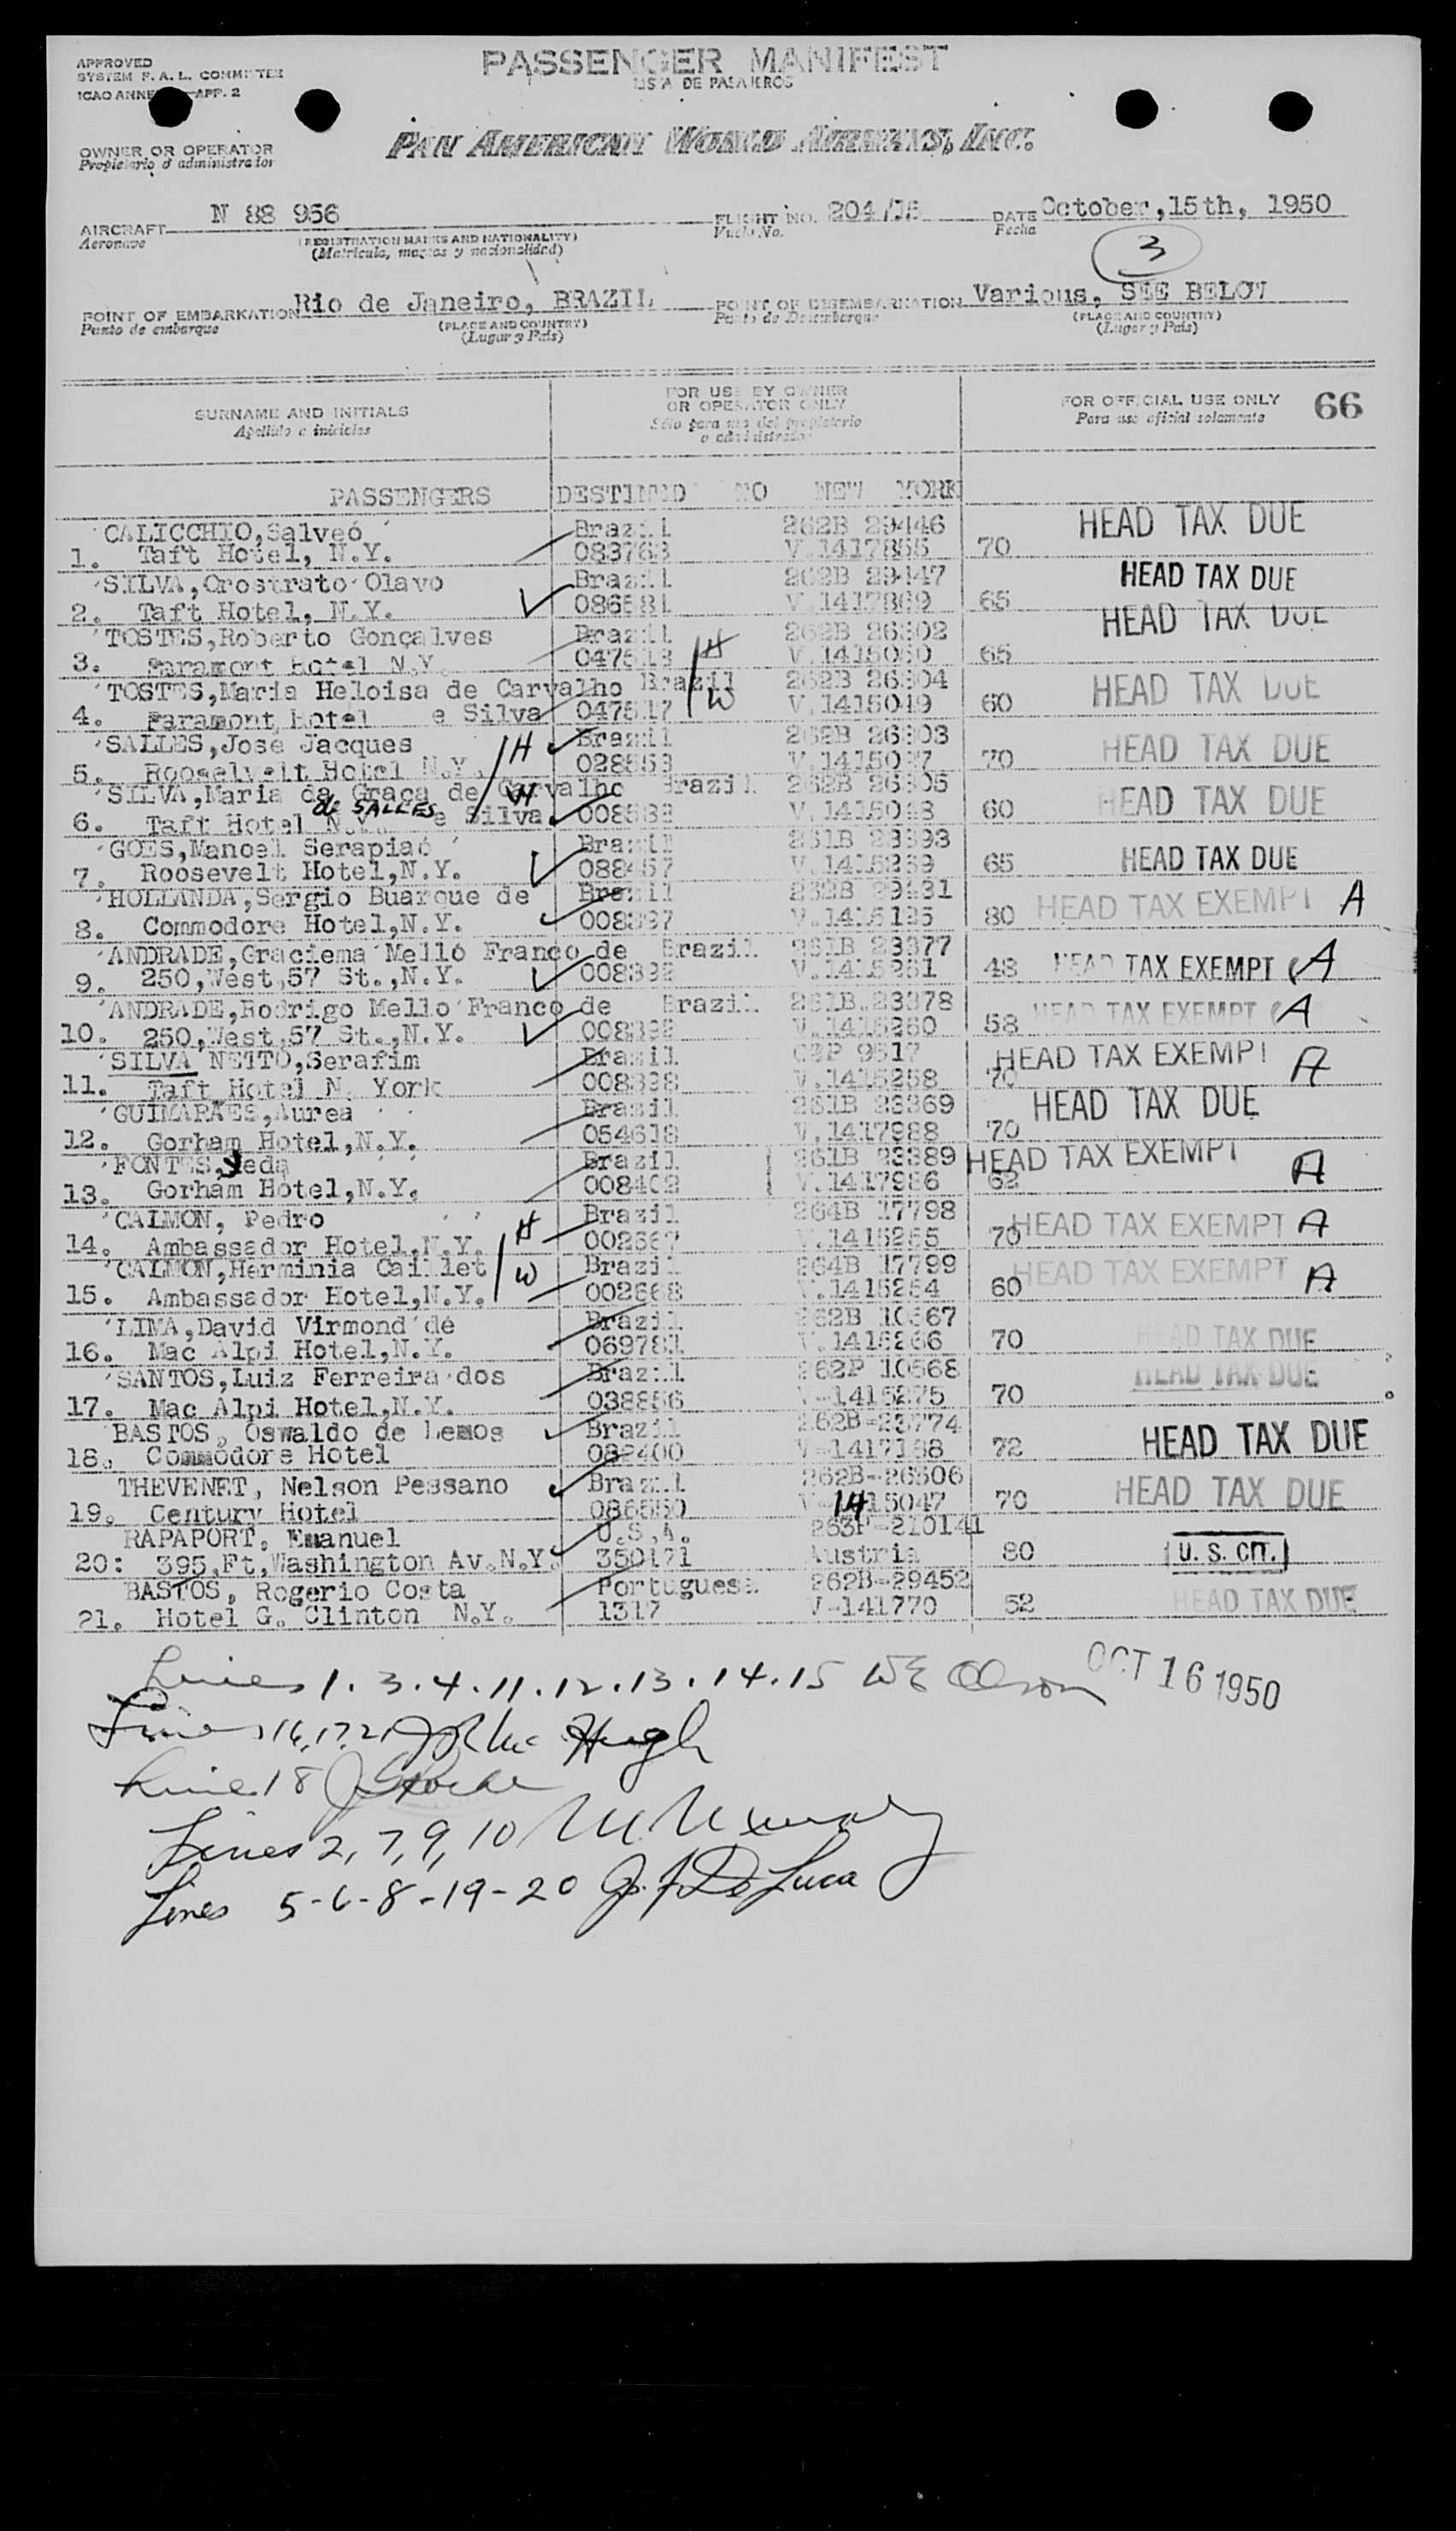 APPROVED
SYSTEM F. A. L. COMMITTEE
ICAO ANNEX APP. 2
PASSENGER MANIFEST
LISTA DE PASAJEROS
OWNER OR OPERATOR
Propietario ó administrador
PAN AMERICAN WORLD AIRWAYS, INC.
AIRCRAFT N 88 956 FLIGHT NO. 204/15 DATE October,15th, 1950
Aeronave (REGISTRATION MARKS AND NATIONALITY) Vuelo No. Fecha
(Matricula, marcas y nacionalidad)
3
POINT OF EMBARKATION Rio de Janeiro, BRAZIL POINT OF DISEMBARKATION Various, SEE BELOW
Punto de embarque (PLACE AND COUNTRY) Punto de Desembarque (PLACE AND COUNTRY)
(Lugar y País) (Lugar y País)
SURNAME AND INITIALS FOR USE BY OWNER OR OPERATOR ONLY FOR OFFICIAL USE ONLY 66
Apellido e iniciales Sólo para uso del propietario o administrador Para uso oficial solamente
PASSENGERS DESTINED TO NEW YORK
CALICCHIO,Salveó Brazil 262B 29446 HEAD TAX DUE
1. Taft Hotel, N.Y. 083763 V.1417855 70
SILVA,Orostrato Olavo Brazil 262B 29447 HEAD TAX DUE
2. Taft Hotel, N.Y. 086581 V.1417869 65
TOSTES,Roberto Gonçalves Brazil 262B 26302 HEAD TAX DUE
3. Paramont Hotel N.Y. 047518 H V.1415050 65
TOSTES,Maria Heloisa de Carvalho Brazil 262B 26304 HEAD TAX DUE
4. Paramont Hotel e Silva 047517 W V.1415049 60
SALLES,José Jacques H Brazil 262B 26303 HEAD TAX DUE
5. Rooselvelt Hotel N.Y. 028553 V.1415047 70
SILVA,Maria da Graça de Carvalho Brazil 262B 26305 HEAD TAX DUE
de SALLES
6. Taft Hotel N.Y. e Silva W 008588 V.1415048 60
GOES,Manoel Serapiaó Brazil 261B 23393 HEAD TAX DUE
7. Roosevelt Hotel,N.Y. 088457 V.1415259 65
HOLLANDA,Sergio Buarque de Brazil 262B 29431 HEAD TAX EXEMPT A
8. Commodore Hotel,N.Y. 008397 V.1415135 80
ANDRADE,Graciema Melló Franco de Brazil 261B 23377 HEAD TAX EXEMPT A
9. 250,West,57 St.,N.Y. 008392 V.1415261 48
ANDRADE,Rodrigo Mello Franco de Brazil 261B 23378 HEAD TAX EXEMPT A
10. 250,West,57 St.,N.Y. 008392 V.1415260 58
SILVA NETTO,Serafim Brasil 9517 HEAD TAX EXEMPT A
11. Taft Hotel N. York 008398 V.1415258 70
GUIMARAES,Aurea Brasil 261B 23369 HEAD TAX DUE
12. Gorham Hotel,N.Y. 054618 V.1417988 70
FONTES,Yeda Brazil 261B 23389 HEAD TAX EXEMPT A
13. Gorham Hotel,N.Y. 008402 V.1417986 62
CALMON, Pedro H Brazil 264B 17798 HEAD TAX EXEMPT A
14. Ambassador Hotel,N.Y. 002667 V.1415255 70
CALMON,Herminia Caillet W Brazil 264B 17799 HEAD TAX EXEMPT A
15. Ambassador Hotel,N.Y. 002668 V.1415254 60
LIMA,David Virmond dé Brazil 262B 10567 HEAD TAX DUE
16. Mac Alpi Hotel,N.Y. 069781 V.1415266 70
SANTOS,Luiz Ferreira dos Brazil 262P 10568 HEAD TAX DUE
17. Mac Alpi Hotel,N.Y. 038856 V-1415275 70
BASTOS, Oswaldo de Lemos Brazil 262B-23774 HEAD TAX DUE
18. Commodore Hotel 082400 V-1417198 72
THEVENET, Nelson Pessano Brazil 262B-26306 HEAD TAX DUE
19. Century Hotel 086550 V-1415047 70
RAPAPORT, Emanuel U.S.A. 263F-210141
20: 395,Ft,Washington Av.N.Y. 350171 Austria 80 U. S. CIT.
BASTOS, Rogerio Costa Portuguesa 262B-29452
21. Hotel G. Clinton N.Y. 1317 V-141770 52 HEAD TAX DUE
Lines 1.3.4.11.12.13.14.15 WE Olson OCT 16 1950
Lines 16,17,21 Mc Hugh
Line 18
Lines 2,7,9,10
Lines 5-6-8-19-20 J. F. De Luca